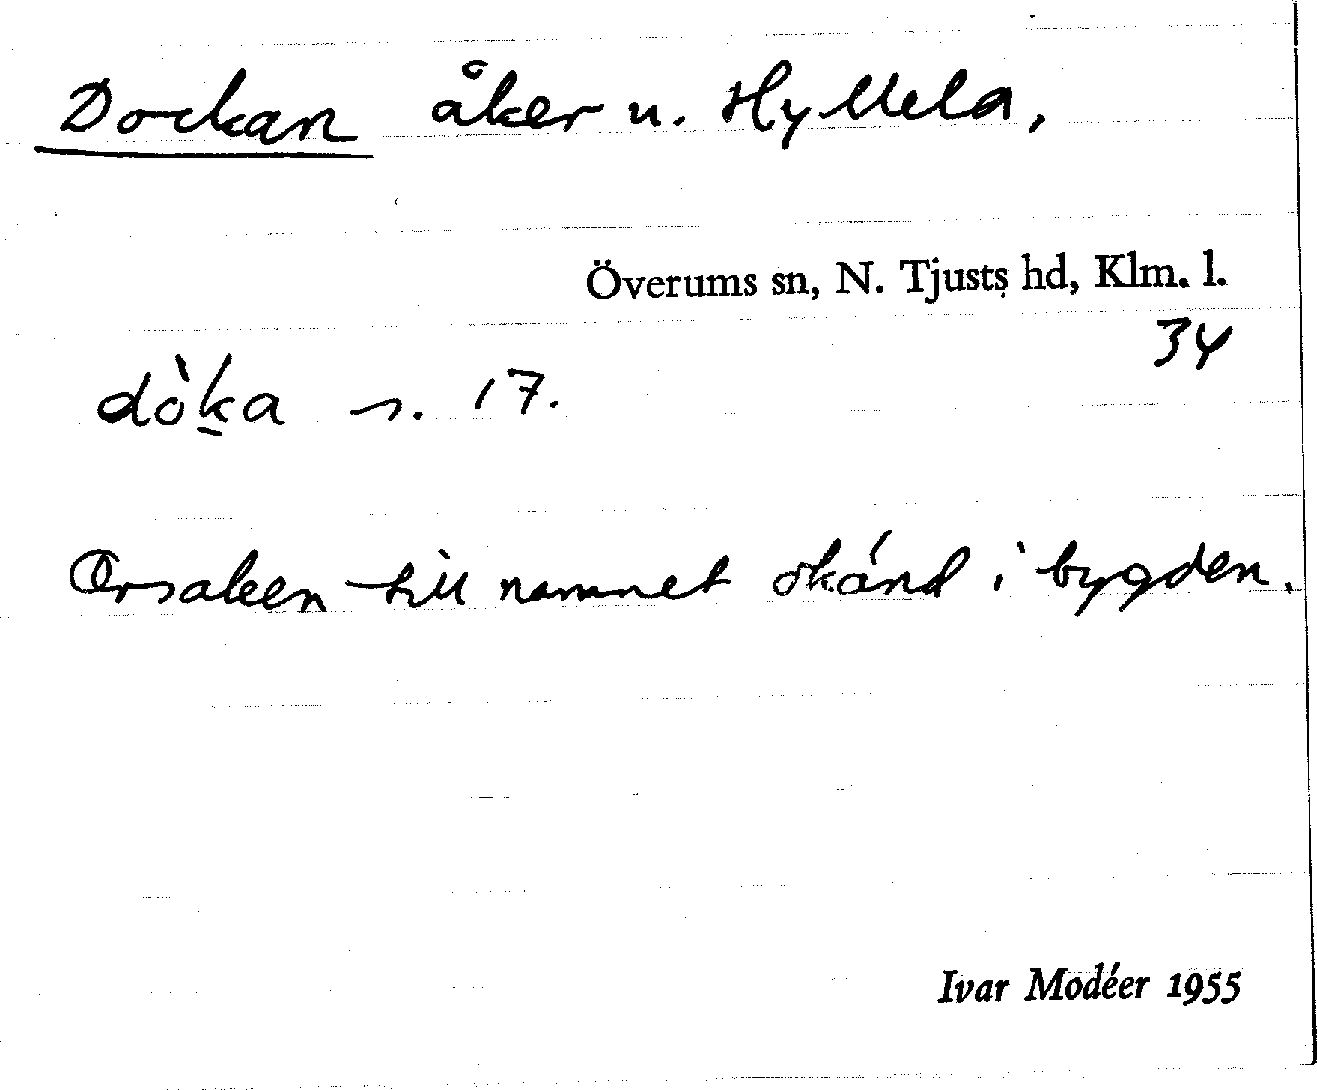 Dockan åker u. Hyllela,
Överums sn, N. Tjusts hd, Klm. l.
34
dòka n. 17.
Orsaken till namnet okänd i bygden.
Ivar Modéer 1955